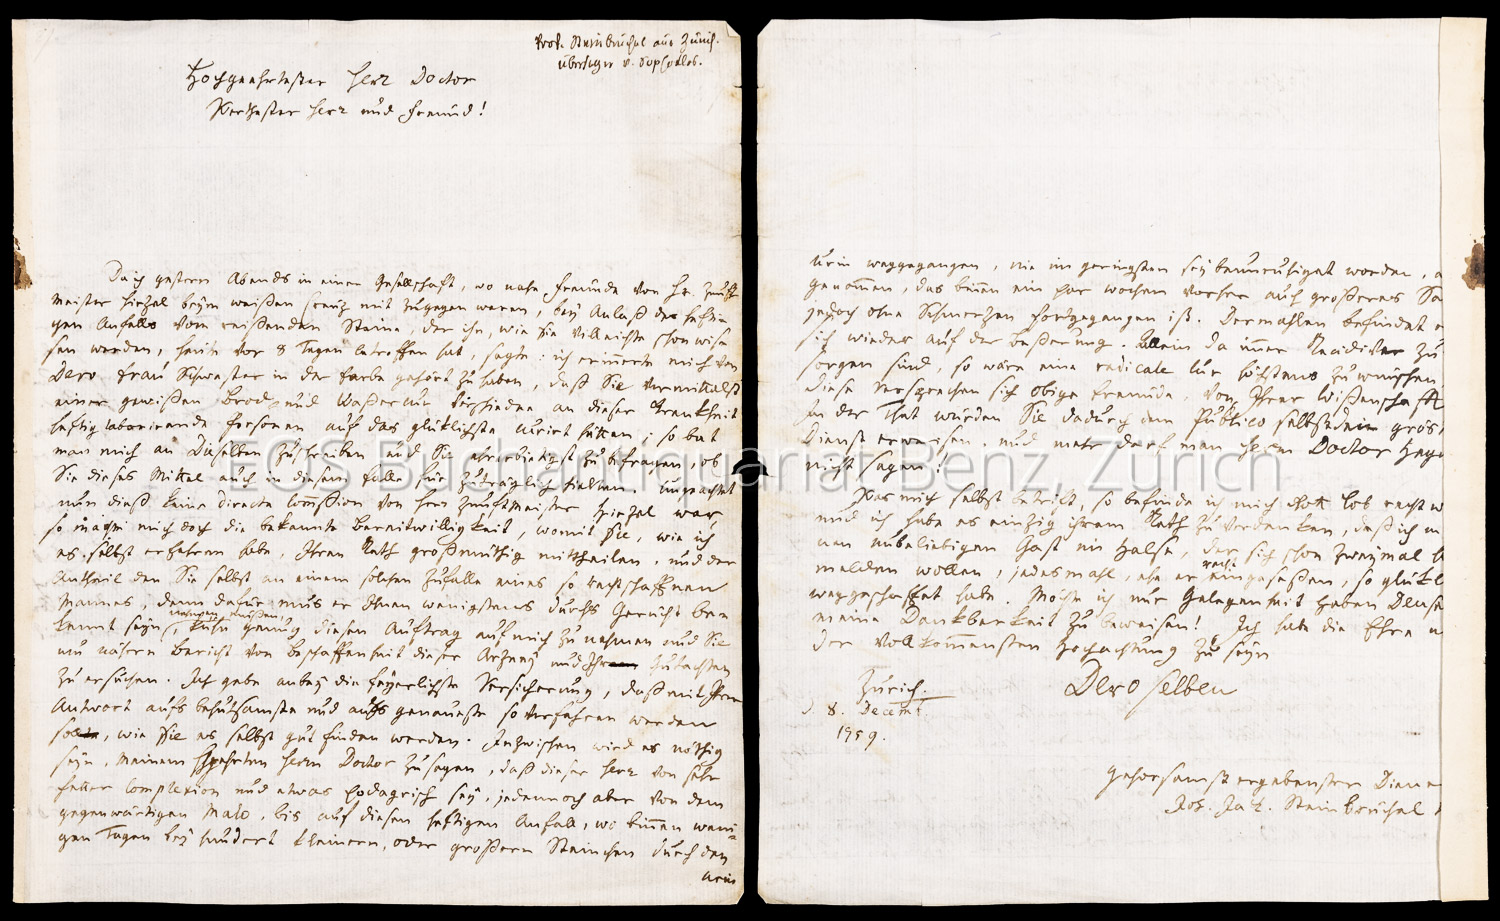 Prof. Steinbrüchel aus Zürich.
übersezer v. Sophocles.
Hochgeehrtester Herr Doctor
Werthester Herr und Freund!
Da ich gestern Abends in einer Gesellschaft, wo nahe Freunde von Hr. Zunft
meister Hirzel beym weißen Creuz mit zugegen waren, bey Anlaß des hefti
gen Anfalls vom reißenden Steine, der ihn, wie Sie villeicht schon wis
sen werden, heute vor 8 Tagen betroffen hat, sagte: ich erinnerte mich von
Dero Frau Schwester in der Farbe gehört zu haben, daß Sie vermittelst
einer gewißen Brod und Waßercur verschiedene an dieser Krankheit
heftig laborirende Personen auf das glüklichste curirt hätten; so bat
man mich an Dieselben zu schreiben und Sie ehrerbietigst zu befragen, ob
Sie dieses Mittel auch in diesem Falle für zuträglich hielten. Ungeachtet
nun dieß keine directe Com̄ißion von Herr Zunftmeister Hirzel war,
so macht mich doch die bekannte Bereitwilligkeit, womit Sie, wie ich
es selbst erfahren habe, Ihren Rath großmüthig mittheilen, und der
Antheil den Sie selbst an einem solchen Zufalle eines so rechtschaffnen
Mannes, denn dafür mus er Ihnen wenigstens durchs Gerücht be
kannt seyn, nehmen müßen, kühn genug diesen Auftrag auf mich zu nehmen und Sie
um nähern Bericht von Beschaffenheit dieser Arzney und Ihr Gutachten
zu ersuchen. Ich gebe anbey die feyerlichste Versicherung, daß mit Ihrer
Antwort aufs behutsamste und aufs genaueste so verfahren werden
solle, wie Sie es selbst gut finden werden. Inzwischen wird es nöthig
seyn, meinem Hochgeehrten Herrn Doctor zu sagen, daß dieser Herr von sehr
fetter Complexion und etwas podagrisch sey, jedennoch aber von dem
gegenwärtigen Malo, bis auf diesen heftigen Anfall, wo binnen weni=
gen Tagen bey hundert kleinern, oder größern Steinchen durch den
Urin
Urin weggegangen, nie im geringsten sey beunruhiget worden,
genom̄en, das binnen ein par Wochen vorher auch größeres
jedoch ohne Schmerzen fortgegangen ist. Dermahlen befindet e
sich wieder auf der Beßerung. Allein da im̄er Recidive zu
sorgen sind, so wäre eine radicale Cur höchstens zu wünschen.
Diese versprechen sich obige Freunde, von Ihrer Wißenschafft
In der That würden Sie dadurch dem Publico selbst einen gros
Dienst erweisen, und mehr darf man Herrn Doctor
nicht sagen!
Was mich selbst betrift, so befinde ich mich Gott Lob recht w
und ich habe es einzig ihrem Rath zu verdanken, daß ich
nen unbeliebigen Gast im Halse, der sich schon zweymal
melden wollen, jedesmahl, ehe er recht eingeseßen, so glükl
weggeschafft habe. Möchte ich nur Gelegenheit haben Dense
meine Dankbarkeit zu beweisen! Ich habe die Ehre
der vollkom̄ensten Hochachtung zu seyn
Dero selben
Zürich.
d 8. Decemb.
1759.
Gehorsamst ergebenster Diene
Joh. Jak. Steinbrüchel
EOS Buchantiquariat Benz, Zürich